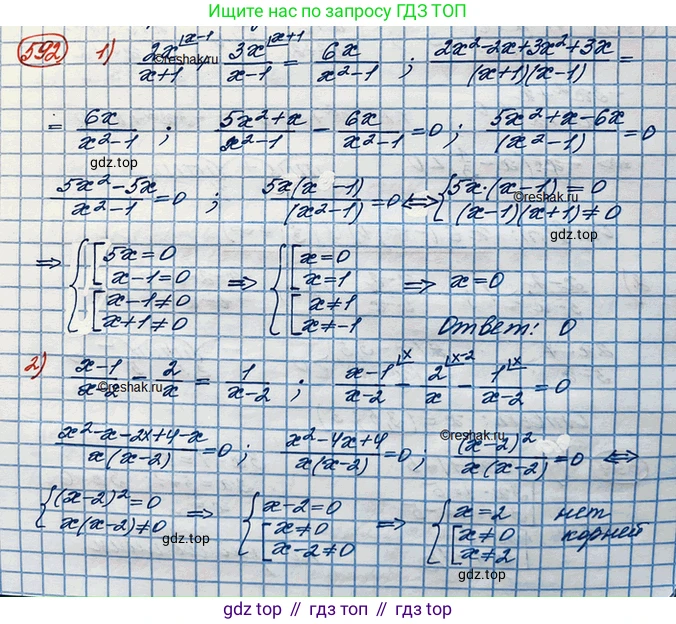 Ищите нас по запросу ГДЗ ТОП
592 1) 2x|x-1/x+1 + 3x|x+1/x-1 = 6x/x²-1 ; 2x²-2x+3x²+3x/(x+1)(x-1) =
©reshak.ru
= 6x/x²-1 ; 5x²+x/x²-1 - 6x/x²-1 = 0 ; 5x²+x-6x/(x²-1) = 0
gdz.top
©reshak.ru
5x²-5x/x²-1 = 0 ; 5x(x-1)/(x²-1) = 0 ⇔ { 5x·(x-1) = 0
(x-1)(x+1) ≠ 0
©reshak.ru
gdz.top
⇒ { [ 5x = 0
x-1 = 0
[ x-1 ≠ 0
x+1 ≠ 0
⇒ { [ x = 0
x = 1
[ x ≠ 1
x ≠ -1
⇒ x = 0
Ответ: 0
2) x-1/x-2 - 2/x = 1/x-2 ; x-1|x/x-2 - 2|x-2/x - 1|x/x-2 = 0
©reshak.ru
x²-x-2x+4-x/x(x-2) = 0 ; x²-4x+4/x(x-2) = 0 ; (x-2)²/x(x-2) = 0 ⇔
©reshak.ru
{ (x-2)² = 0
x(x-2) ≠ 0
⇒ { x-2 = 0
[ x ≠ 0
x-2 ≠ 0
⇒ { x = 2
[ x ≠ 0
x ≠ 2
нет
корней
gdz.top
gdz.top
gdz.top // гдз топ // gdz top